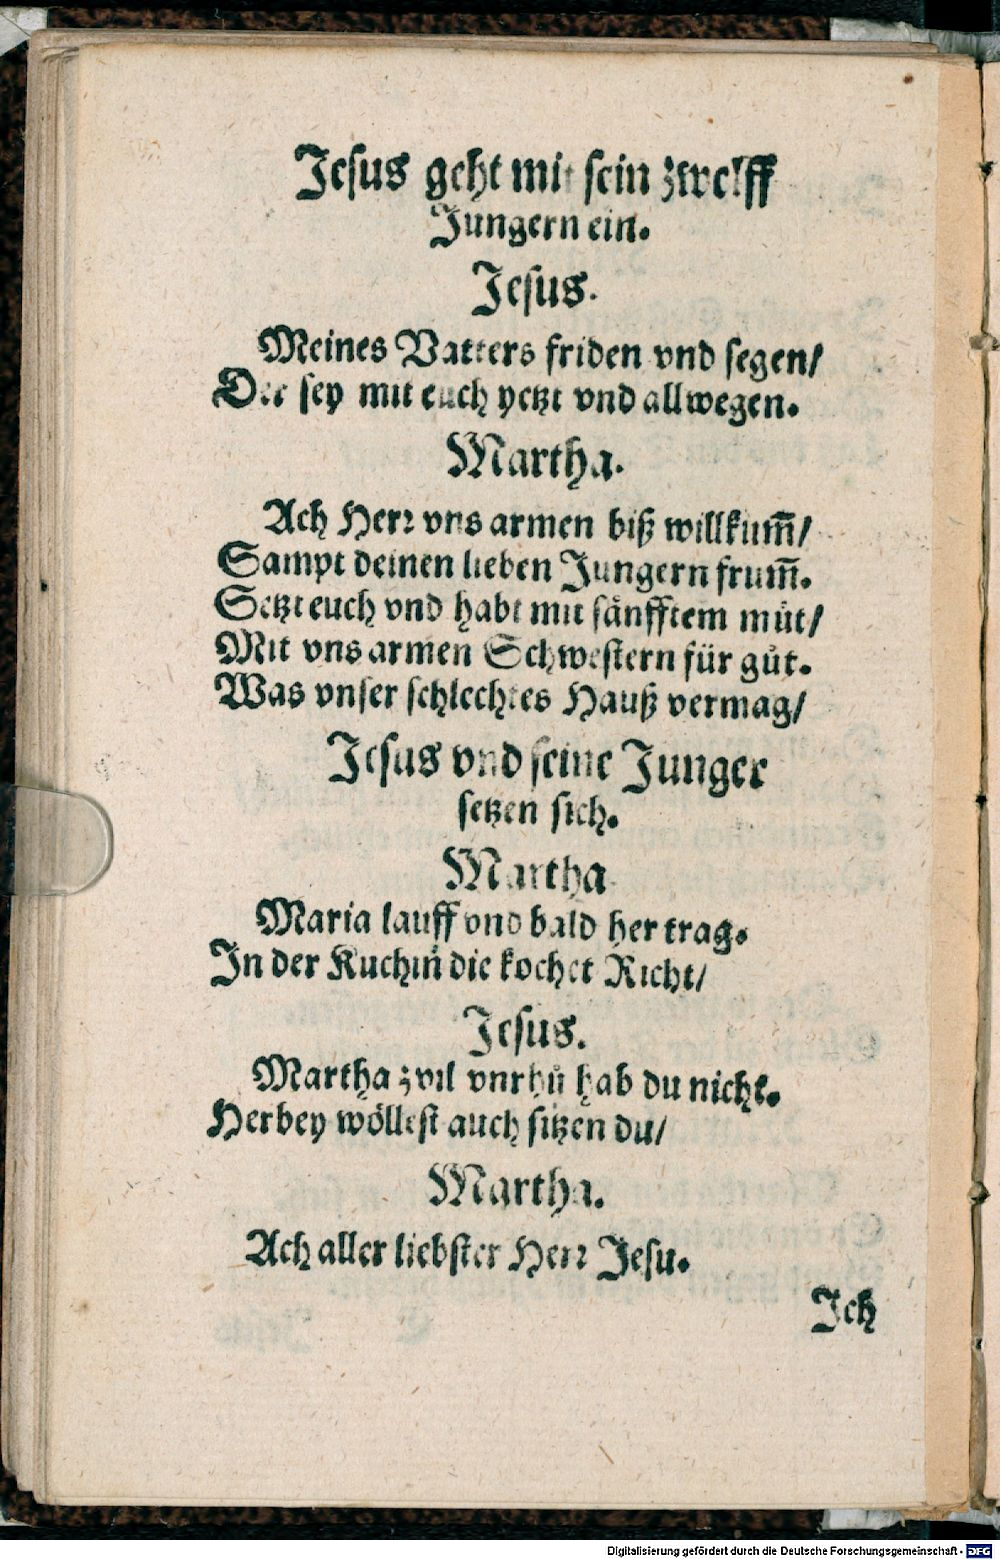 Jesus geht mit sein zwelff
Jungern ein.
Jesus.
Meines Vatters friden vnd segen/
Der sey mit euch yetzt vnd allwegen.
Martha.
Ach Herr vns armen biß willkum̃/
Sampt deinen lieben Jungern frum̃.
Setzt euch vnd habt mit sånfftem můt/
Mit vns armen Schwestern für gůt.
Was vnser schlechtes Hauß vermag/
Jesus vnd seine Junger
setzen sich.
Martha
Maria lauff vnd bald her trag.
In der Kuchin̄ die kochet Richt/
Jesus.
Martha zvil vnrhů hab du nicht.
Herbey wöllest auch sitzen du/
Martha.
Ach aller liebster Herr Jesu.
Ich
Digitalisierung gefördert durch die Deutsche Forschungsgemeinschaft - DFG